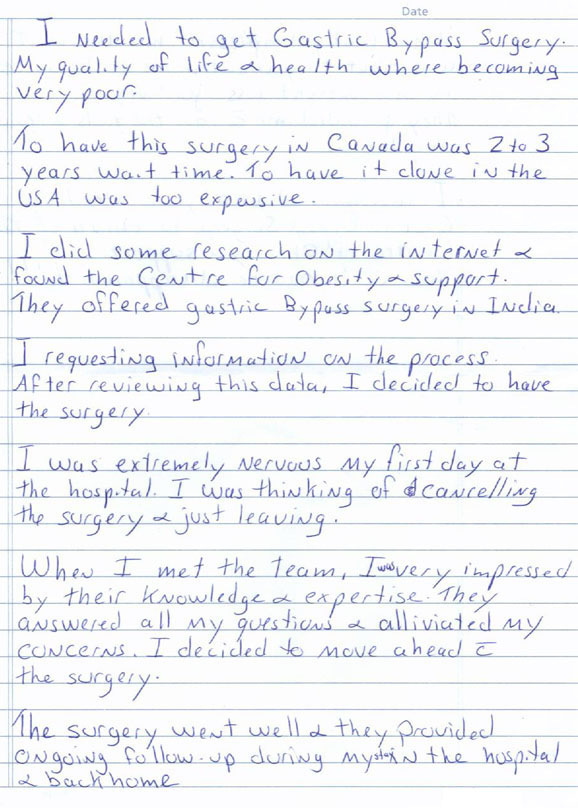 Date
I Needed to get Gastric Bypass Surgery.
My quality of life & health where becoming
very poor.
To have this surgery in Canada was 2 to 3
years wait time. To have it done in the
USA was too expensive.
I did some research on the internet &
found the Centre for Obesity & support.
They offered gastric Bypass surgery in India.
I requesting information on the process.
After reviewing this data, I decided to have
the surgery.
I was extremely nervous my first day at
the hospital. I was thinking of cancelling
the surgery & just leaving.
When I met the team, I was very impressed
by their knowledge & expertise. They
answered all my questions & alliviated my
concerns. I decided to move ahead c̄
the surgery.
The surgery went well & they provided
ongoing follow-up during my stay in the hospital
& back home